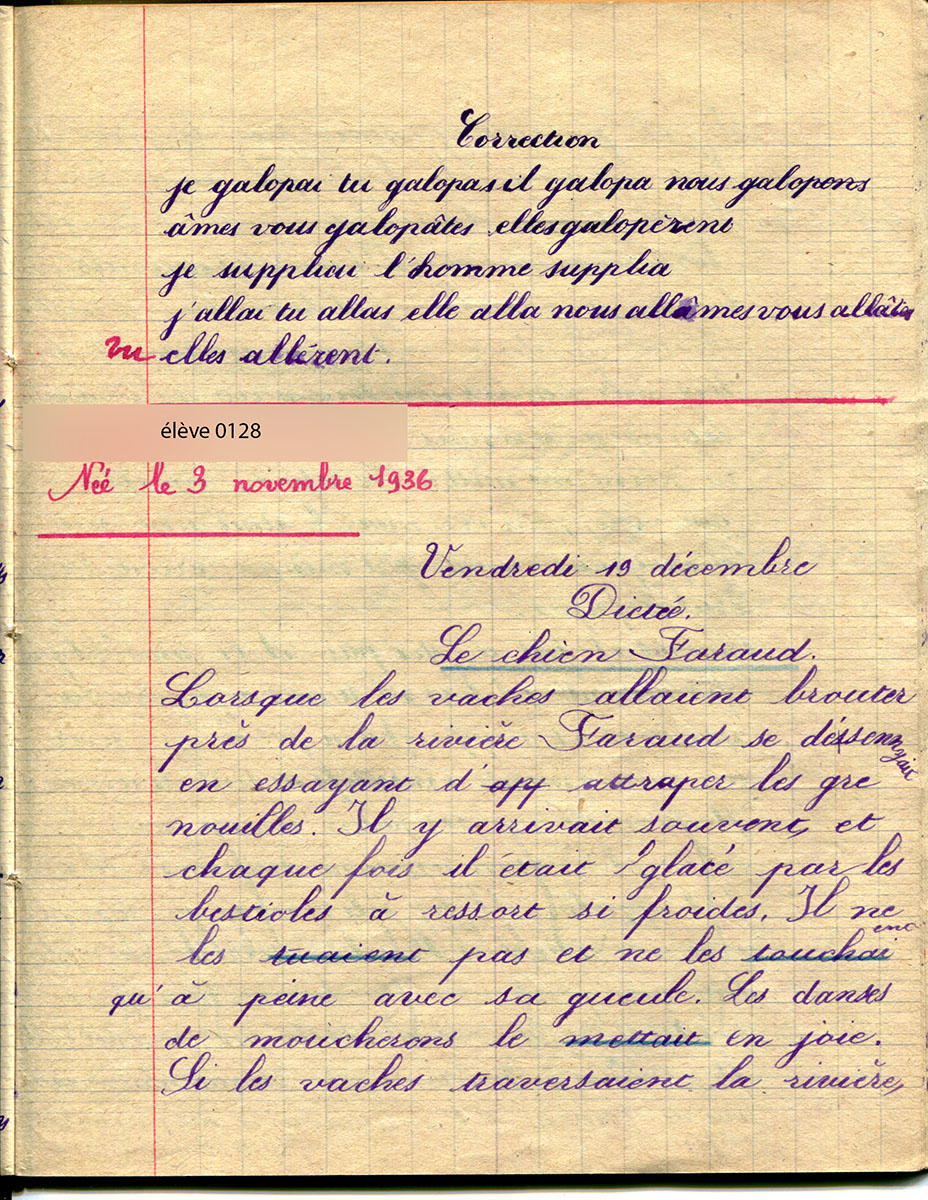 Correction
je galopai tu galopas il galopa nous galopons
âmes vous galopâtes elles galopèrent
je suppliai l'homme supplia
j'allai tu allas elle alla nous allâmes vous allâtes
vu elles allèrent.
élève 0128
Née le 3 novembre 1936
Vendredi 19 décembre
Dictée.
Le chien Faraud.
Lorsque les vaches allaient brouter
près de la rivière Faraud se désennyait
en essayant d'app attraper les gre
nouilles. Il y arrivait souvent, et
chaque fois il était glacé par les
bestioles à ressort si froides. Il ne
les tuaient pas et ne les touchaient
qu'à peine avec sa gueule. Les danses
de moucherons le mettait en joie.
Si les vaches traversaient la rivière,